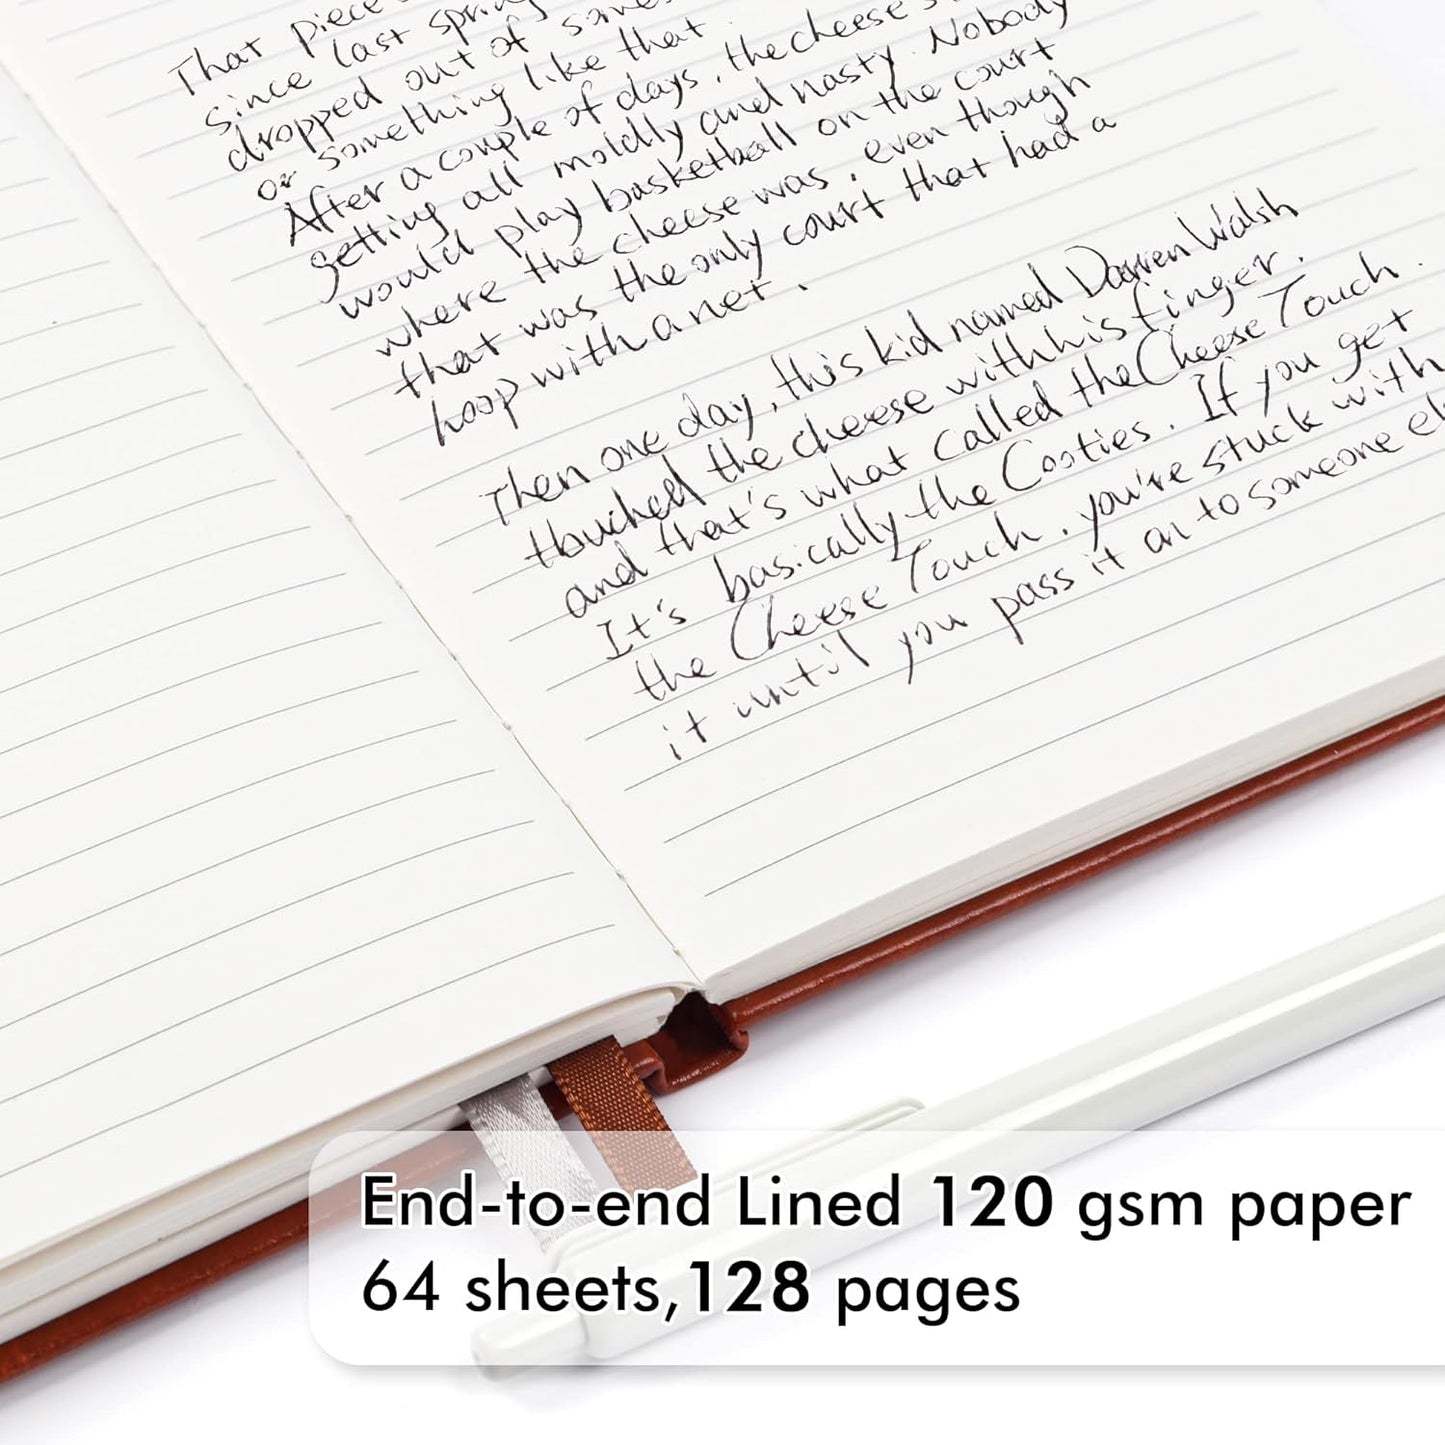 That piece
since last spring
dropped out of
or something like that
After a couple of days, the cheese
getting all moldly and nasty. Nobody
would play basketball on the court
where the cheese was, even though
that was the only court that had a
hoop with a net.
Then one day, this kid named Darren Walsh
thouched the cheese with his finger.
and that's what called the Cheese Touch.
It's basically the Cooties. If you get
the Cheese Touch, you're stuck with
it until you pass it on to someone
End-to-end Lined 120 gsm paper
64 sheets,128 pages